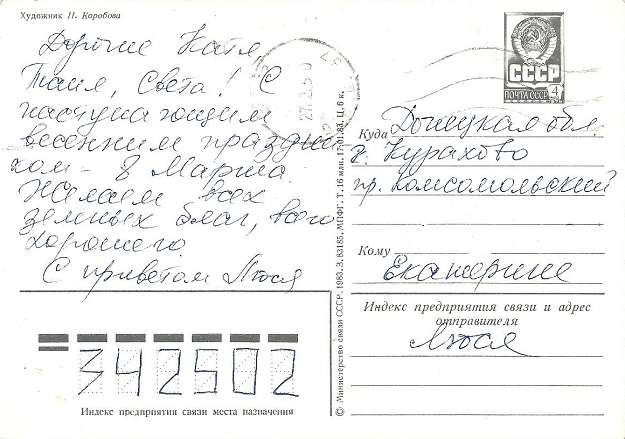 Художник Н. Коробова
Дорогие Катя
Таня, Света! С
наступающим
весенним праздни
ком - 8 Марта.
Желаем всех
земных благ, всего
хорошего.
С приветом Люся
СССР
ПОЧТА СССР 4 к
Куда Донецкая обл.
г. Курахово
пр. Комсомольский
Кому
Екатерине
Индекс предприятия связи и адрес
отправителя
Люся
342502
Индекс предприятия связи места назначения
© Министерство связи СССР, 1983. З. 83185. МПФГ. Т. 16 млн. 17.01.83. Ц. 6 к.